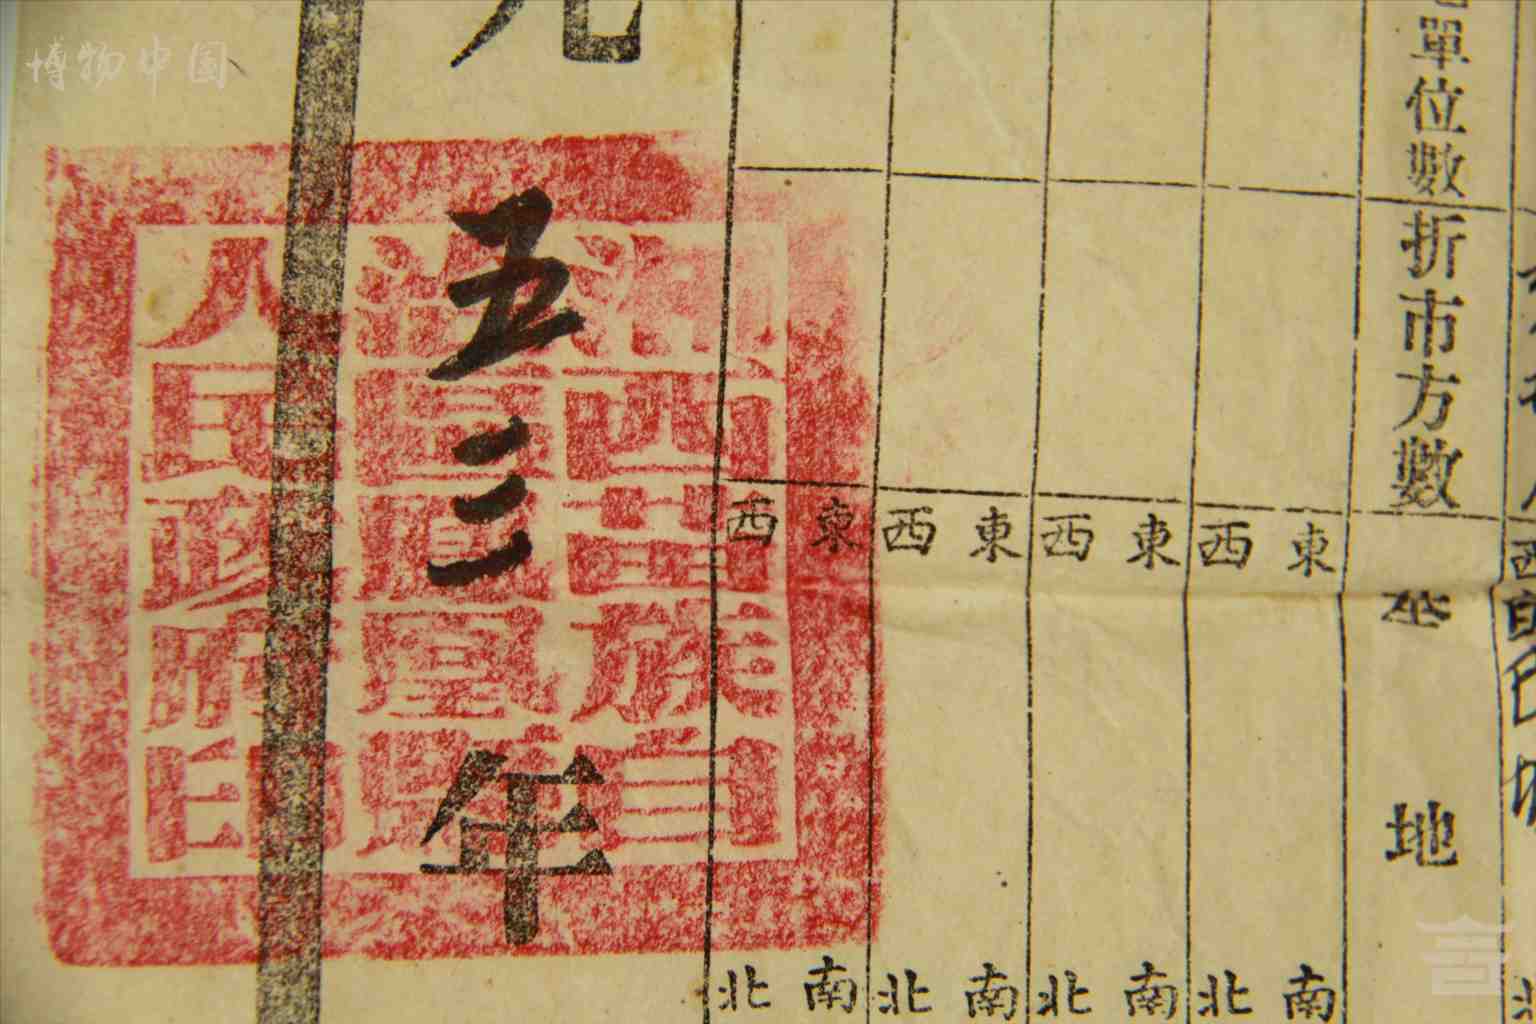 博物中国
單位數
折市方數
基地
東 西 東 西 東 西 東 西
南 北 南 北 南 北 南 北
五三年
湘西苗族自
治區鳳凰縣
人民政府印